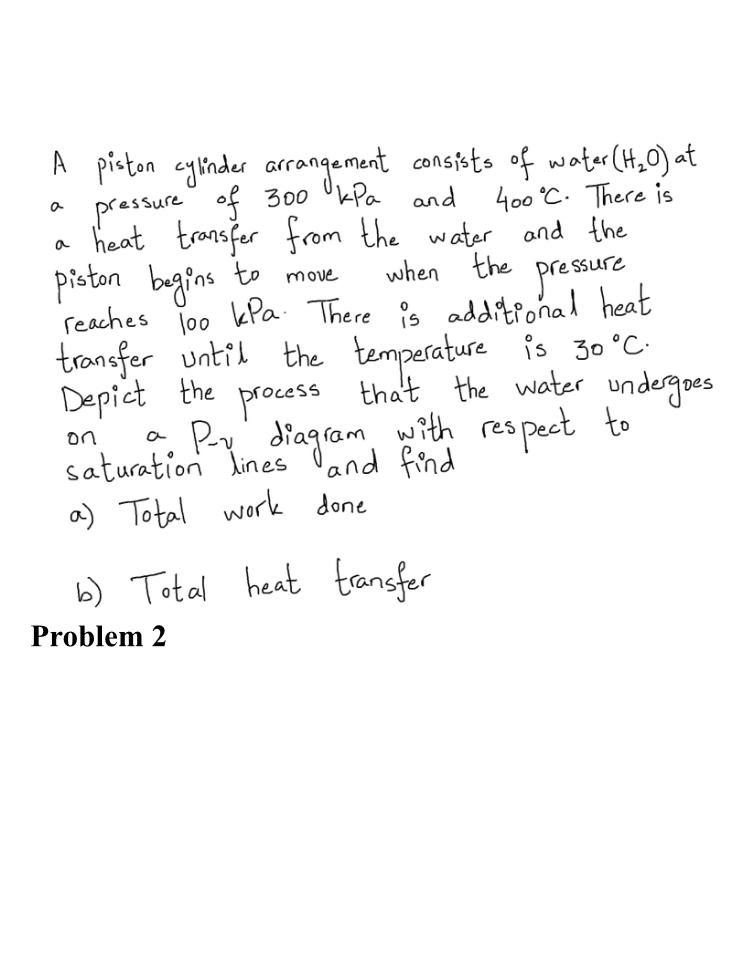 A piston cylinder arrangement consists of water (H₂O) at
a pressure of 300 kPa and 400 °C. There is
a heat transfer from the water and the
piston begins to move when the pressure
reaches 100 kPa. There is additional heat
transfer until the temperature is 30 °C.
Depict the process that the water undergoes
on a P-v diagram with respect to
saturation lines and find
a) Total work done
b) Total heat transfer
Problem 2